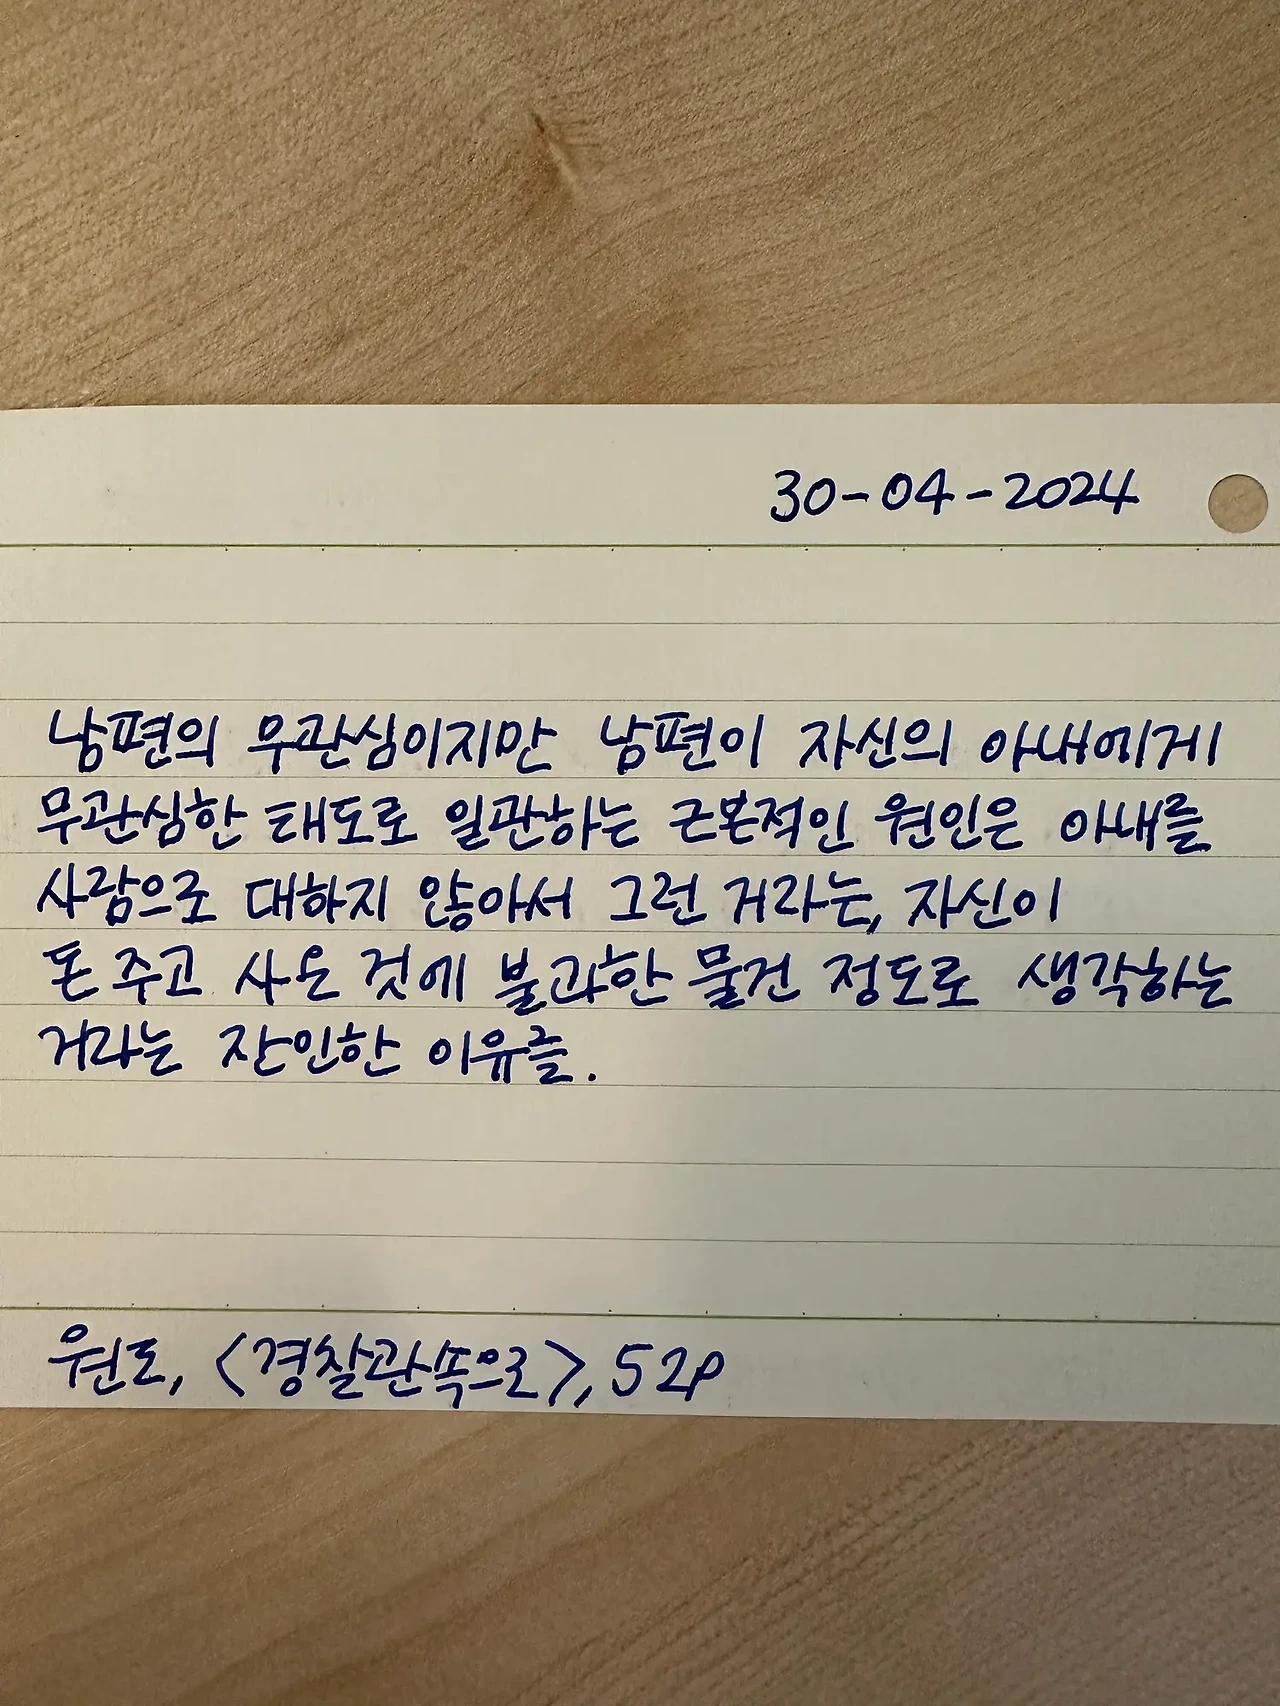 30-04-2024
남편의 무관심이지만 남편이 자신의 아내에게
무관심한 태도로 일관하는 근본적인 원인은 아내를
사람으로 대하지 않아서 그런 거라는, 자신이
돈 주고 사온 것에 불과한 물건 정도로 생각하는
거라는 잔인한 이유들.
원도, <경찰관속으로>, 52p